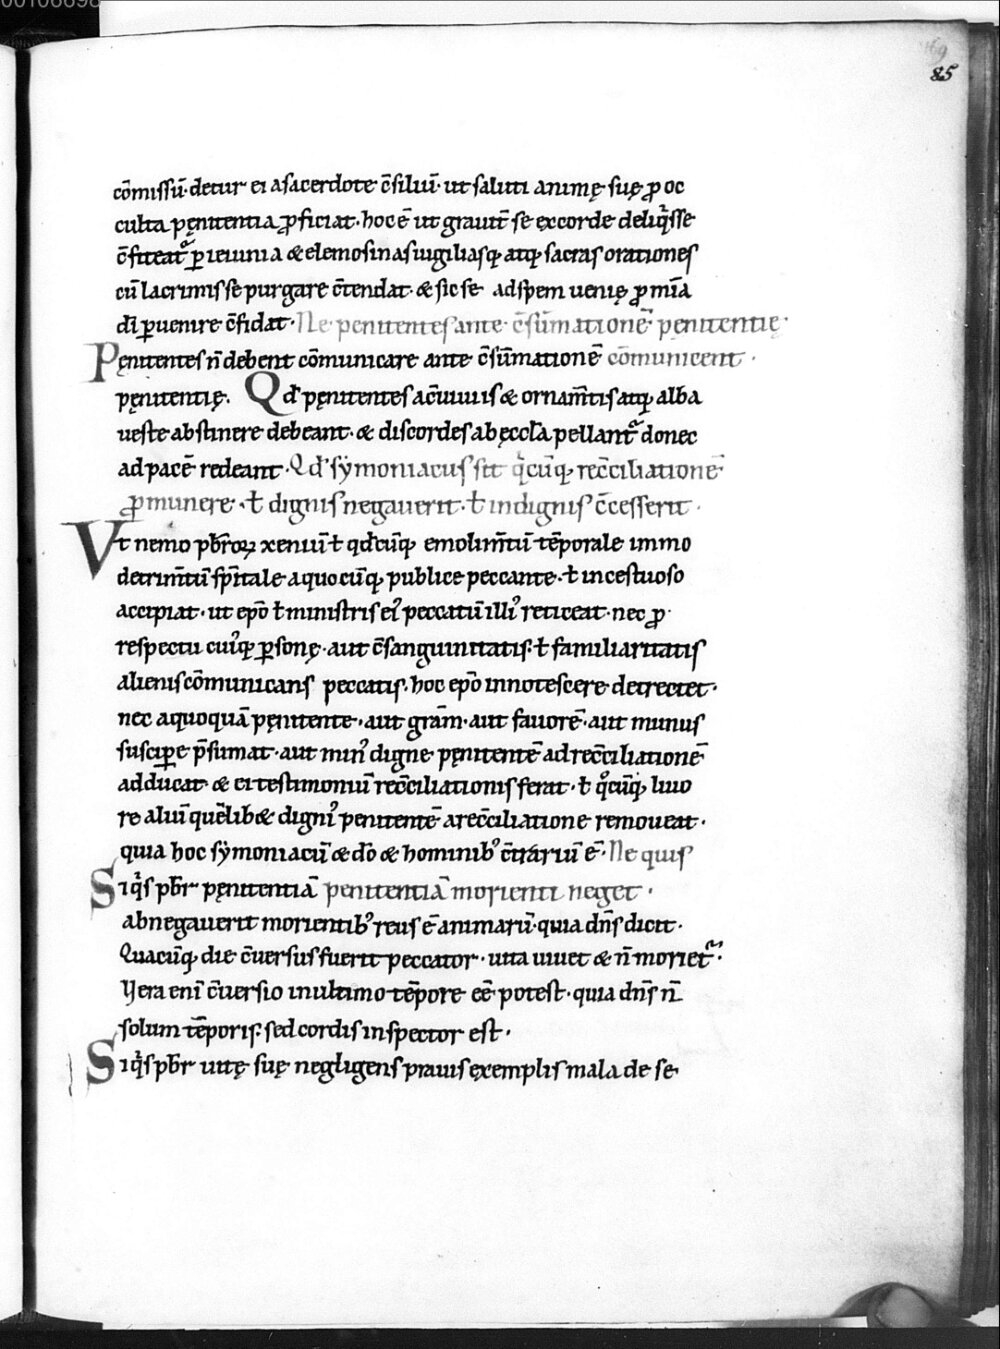 00106698
169
85
cōmissū· detur ei a sacerdote c̄siluī· ut saluti animę suę ꝓ oc
culta pęnitentia ꝓficiat· hoc ē ut grauit̄ se ex corde deliq̄sse
c̄fiteat᷑ ꝑ ieiunia & elemosinas uigiliasq; atq; sacras orationes
cū lacrimis se purgare c̄tendat· & sic se ad spem uenię ꝓ mīa
dī ꝑuenire c̄fidat· Ne penitentes ante c̄sūmationē pęnitentię
Pęnitentes n̄ debent cōmunicare ante c̄sūmationē cōmunicent·
pęnitentię. Qd̄ pęnitentes a c̄uiuiis & ornam̄tis atq; alba
ueste abstinere debeant· & discordes ab ęccl̄a pellant᷑ donec
ad pacē redeant· Qd̄ sẏmoniacus sit q̄cūq; rec̄ciliationē
ꝓ munere· ł dignis negauerit· ł indignis c̄cesserit·
Vt nemo pb̄roꝝ xeniuī ł qd̄cūq; emolim̄tū tēporale immo
detrim̄tū sp̄itale a quocūq; publice peccante· ł incestuoso
accipiat· ut ep̄o ł ministris ei᾽ peccatū illi᾽ reticeat· nec ꝓ
respectu cui᾽q; ꝑsonę· aut c̄sanguinitatis· ł familiaritatis
alienis cōmunicans peccatis· hoc ep̄o innotescere detrectet·
nec a quoquā pęnitente· aut grām· aut fauorē· aut munus
suscipe p̄sumat· aut min᾽ digne pęnitentē ad rec̄ciliationē
adducat· & ei testimoniū rec̄ciliationis ferat· ł q̊cūq; liuo
re aluī quēlib& digni᾽ penitentē a rec̄ciliatione remoueat·
quia hoc sẏmoniacū & dō & hominib᾽ c̄trāriū ē· Ne quis
Siq̄s pb̄r pęnitentiā penitentiā morienti neget·
abnegauerit morientib᾽ reus ē animarū· quia dn̄s dicit·
Quacūq; die c̄uersus fuerit peccator· uita uiuet & n̄ moriet᷑·
Vera eni c̄uersio in ultimo tēpore eē potest· quia dn̄s n̄
solum tēporis· sed cordis inspector est·
Siq̄s pb̄r uitę suę negligens prauis exemplis mala de se